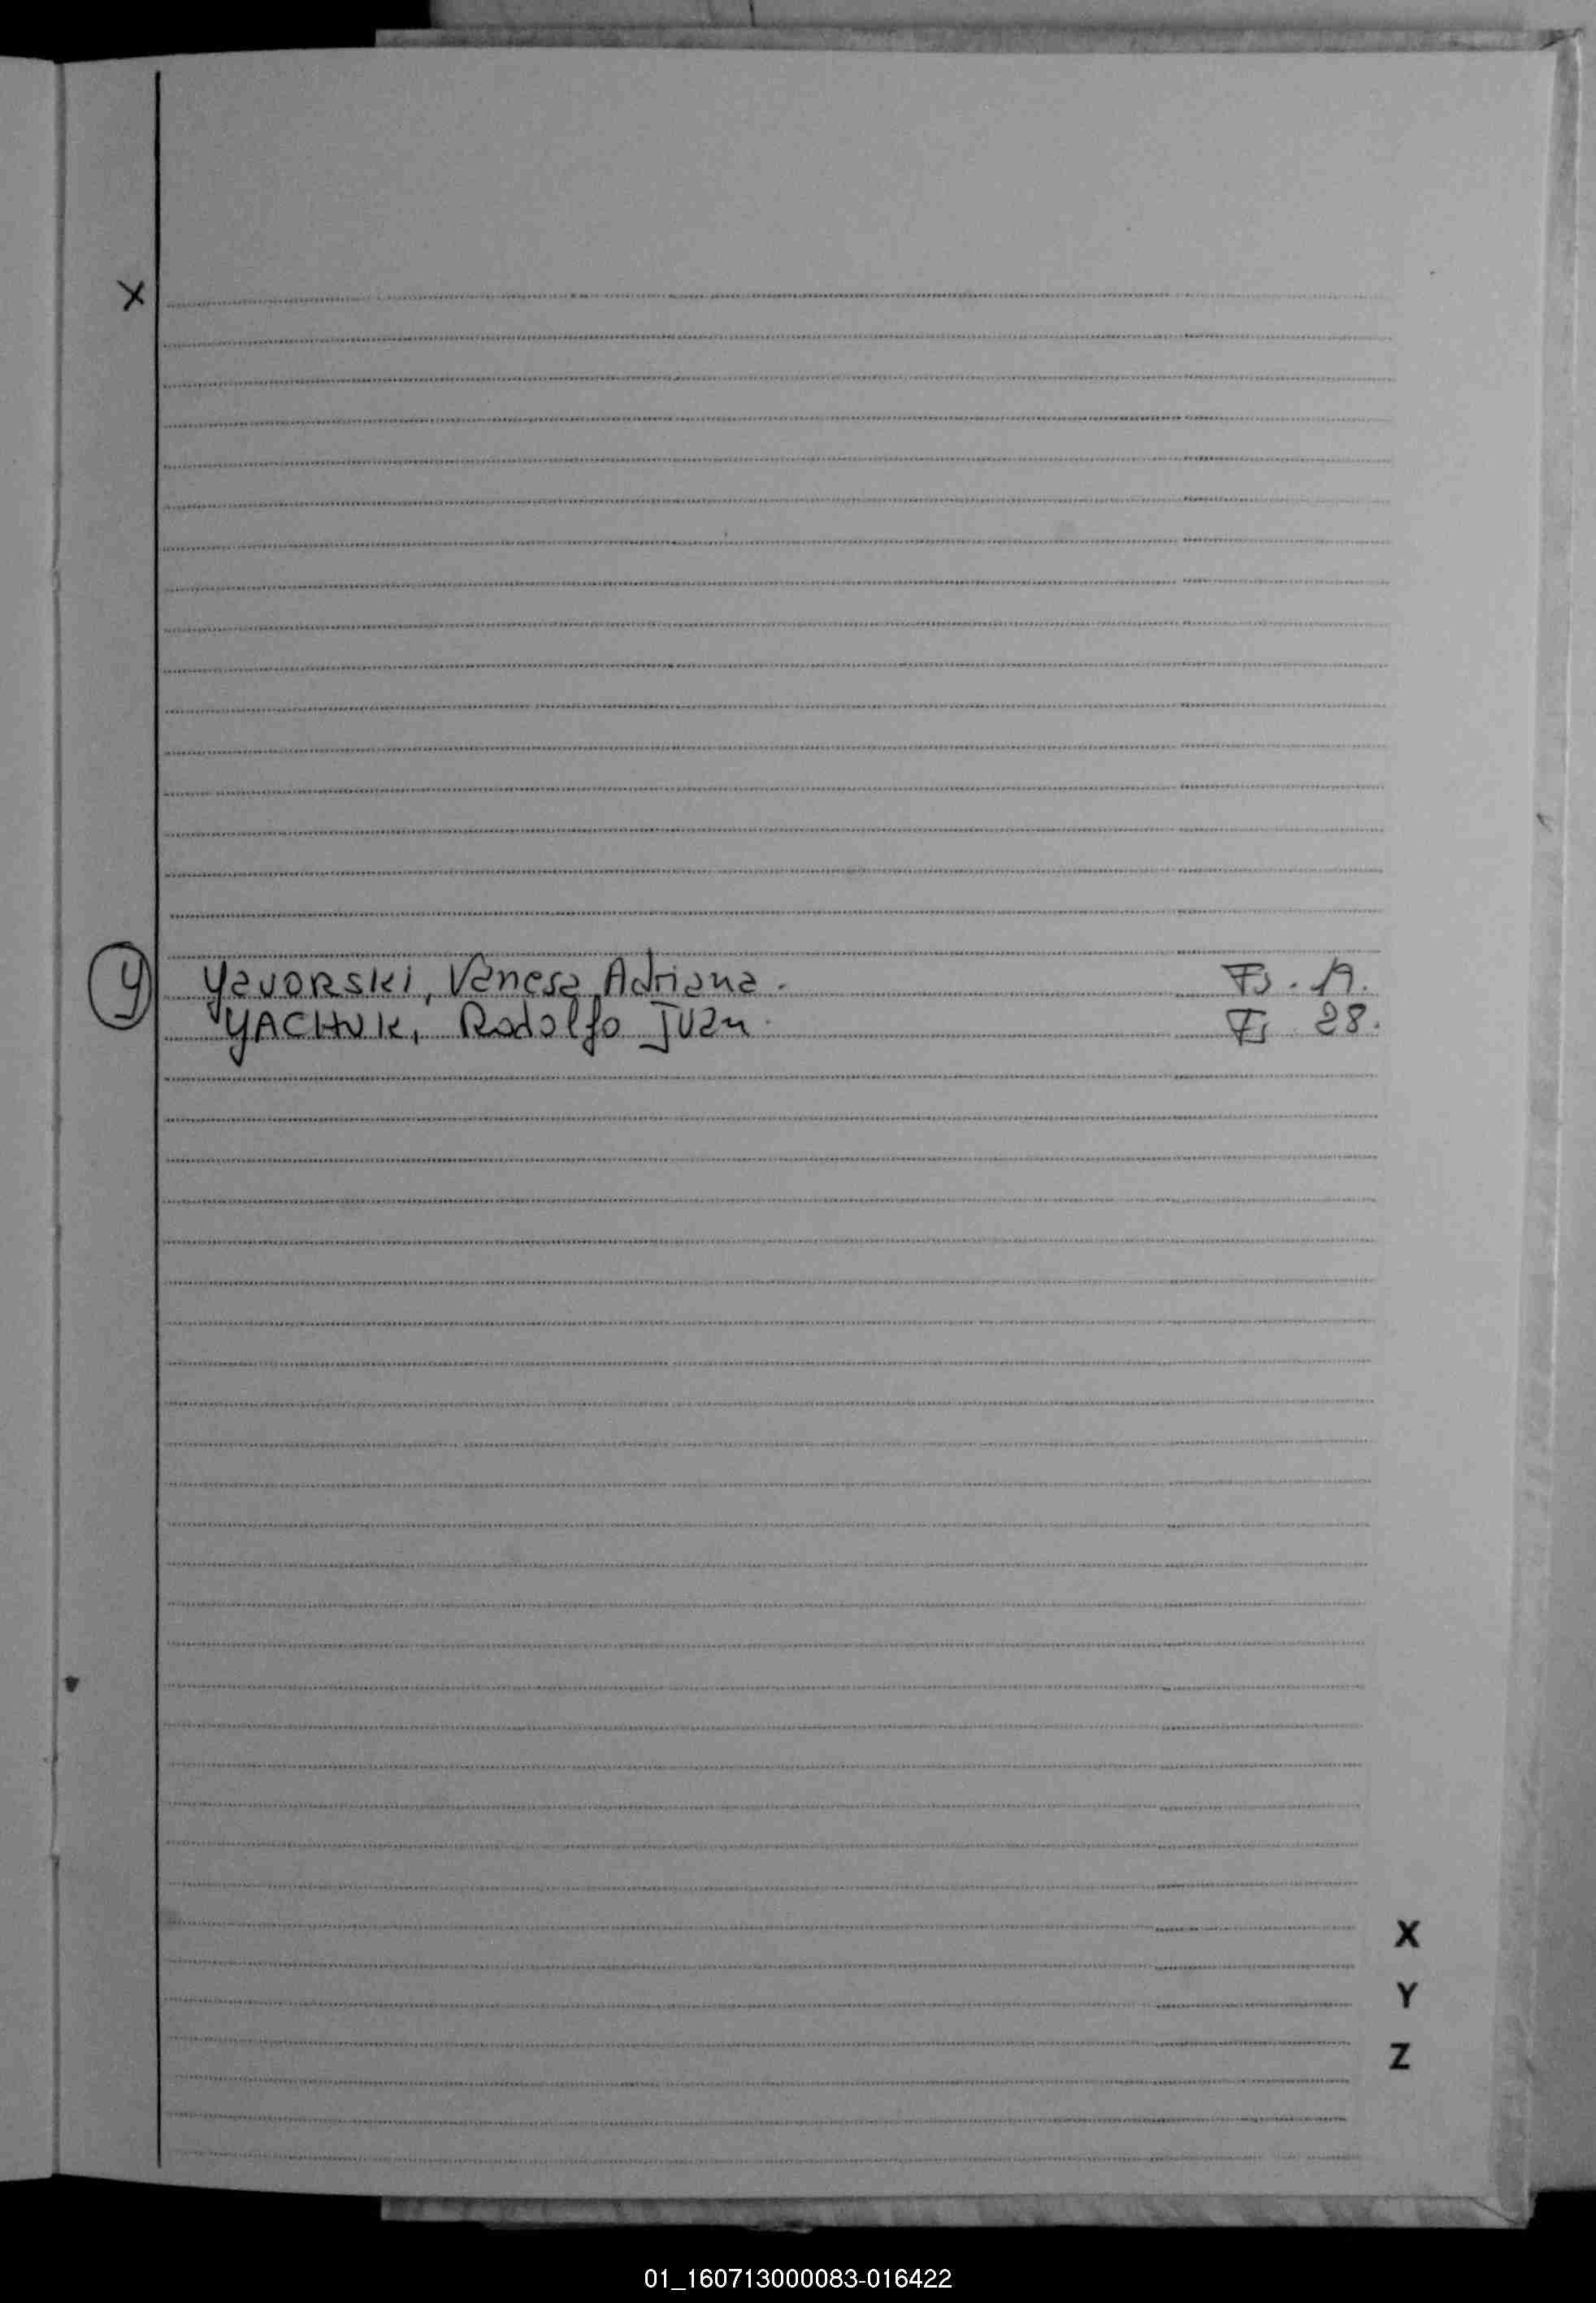 X
Y Yavorski, Vanesa Adriana. Fs. 19.
YACHUK, Rodolfo Juan. Fs 28.
X
Y
Z
01_160713000083-016422